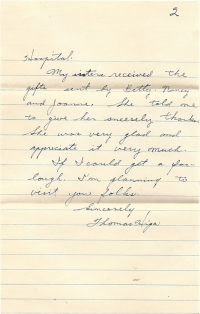 2
Hospital.
My sisters received the
gifts sent by Kitty, Nancy
and Joanne. She told me
to give her sincerely thanks.
She was very glad and
appreciate it very much.
If I could get a fur-
lough. I'm planning to
visit your folks.
Sincerely
Thomas Higa